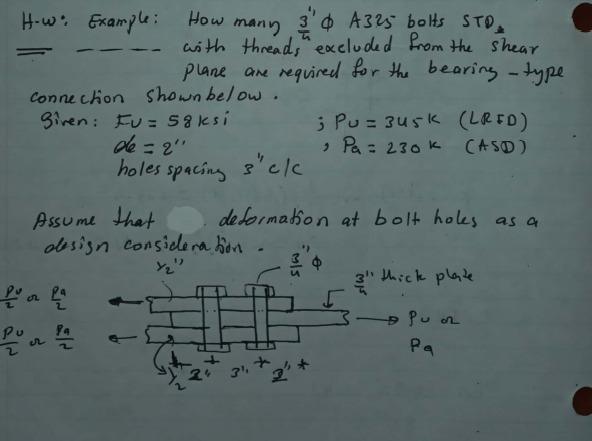 H-w: Example: How many 3"/4 ϕ A325 bolts STD.
with threads excluded from the shear
plane are required for the bearing-type
connection shown below.
Given: Fu = 58 ksi ; Pu = 345 k (LRFD)
de = 2" , Pa = 230 k (ASD)
holes spacing 3" c/c
Assume that deformation at bolt holes as a
design consideration.
1/2" 3"/4 ϕ
3"/4 thick plate
Pu/2 or Pa/2
Pu or
Pa
Pu/2 or Pa/2
1/2 2" 3" 2"